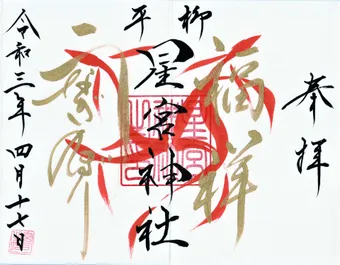 奉拝
福祥
柳平
星宮神社
令和三年四月十七日